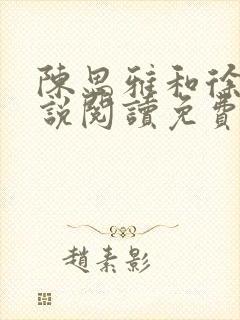 陳思雅和徐
說閱讀免費
趙素影